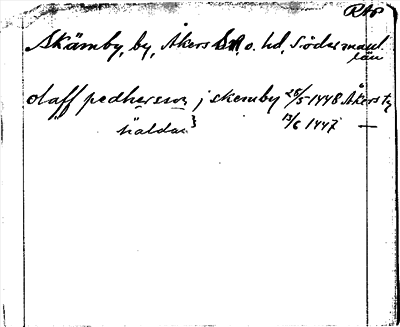 RAP
Skämby, by, Åkers sn. o. hd, Södermanl.
län
olaff pedhersson j skemby 28/5 1448 Åkers tg
häldan } 13/6 1447 —